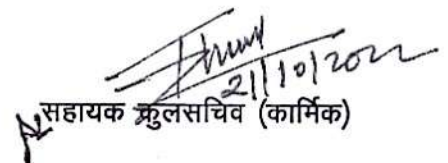 21/10/2022
सहायक कुलसचिव (कार्मिक)